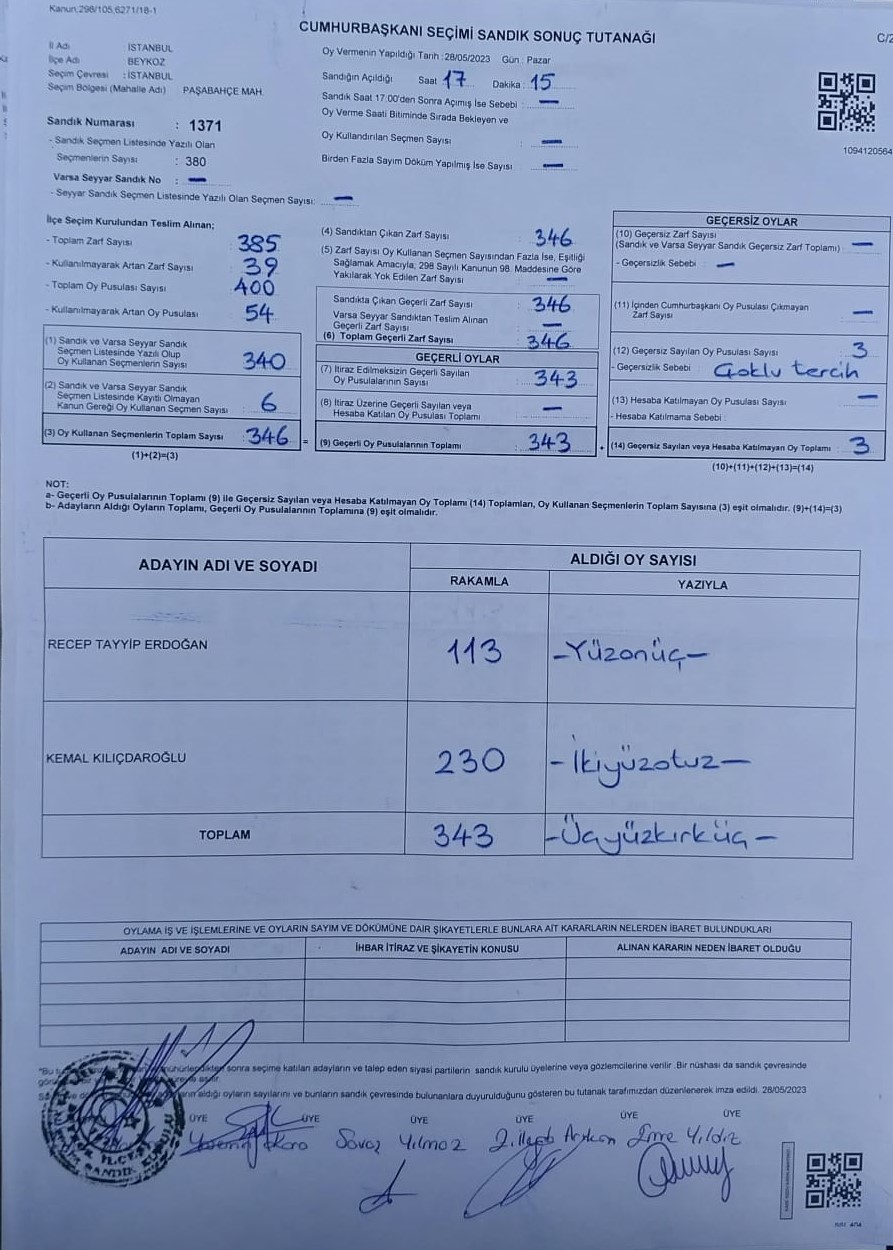 Kanun,298/105,6271/18-1
CUMHURBAŞKANI SEÇİMİ SANDIK SONUÇ TUTANAĞI
C/2
İl Adı İSTANBUL
İlçe Adı BEYKOZ
Seçim Çevresi : İSTANBUL
Seçim Bölgesi (Mahalle Adı) PAŞABAHÇE MAH.
Sandık Numarası : 1371
- Sandık Seçmen Listesinde Yazılı Olan
Seçmenlerin Sayısı : 380
Varsa Seyyar Sandık No : —
- Seyyar Sandık Seçmen Listesinde Yazılı Olan Seçmen Sayısı: —
Oy Vermenin Yapıldığı Tarih : 28/05/2023 Gün : Pazar
Sandığın Açıldığı Saat 17 Dakika : 15
Sandık Saat 17:00'den Sonra Açımış İse Sebebi : —
Oy Verme Saati Bitiminde Sırada Bekleyen ve
Oy Kullandırılan Seçmen Sayısı : —
Birden Fazla Sayım Döküm Yapılmış İse Sayısı : —
1094120564
İlçe Seçim Kurulundan Teslim Alınan;
- Toplam Zarf Sayısı : 385
- Kullanılmayarak Artan Zarf Sayısı : 39
- Toplam Oy Pusulası Sayısı : 400
- Kullanılmayarak Artan Oy Pusulası : 54
(1) Sandık ve Varsa Seyyar Sandık
Seçmen Listesinde Yazılı Olup
Oy Kullanan Seçmenlerin Sayısı : 340
(2) Sandık ve Varsa Seyyar Sandık
Seçmen Listesinde Kayıtlı Olmayan
Kanun Gereği Oy Kullanan Seçmen Sayısı : 6
(3) Oy Kullanan Seçmenlerin Toplam Sayısı : 346 =
(1)+(2)=(3)
(4) Sandıktan Çıkan Zarf Sayısı : 346
(5) Zarf Sayısı Oy Kullanan Seçmen Sayısından Fazla İse, Eşitliği
Sağlamak Amacıyla, 298 Sayılı Kanunun 98. Maddesine Göre
Yakılarak Yok Edilen Zarf Sayısı : —
Sandıkta Çıkan Geçerli Zarf Sayısı : 346
Varsa Seyyar Sandıktan Teslim Alınan
Geçerli Zarf Sayısı : —
(6) Toplam Geçerli Zarf Sayısı : 346
GEÇERLİ OYLAR
(7) İtiraz Edilmeksizin Geçerli Sayılan
Oy Pusulalarının Sayısı : 343
(8) İtiraz Üzerine Geçerli Sayılan veya
Hesaba Katılan Oy Pusulası Toplamı : —
(9) Geçerli Oy Pusulalarının Toplamı : 343 +
GEÇERSİZ OYLAR
(10) Geçersiz Zarf Sayısı
(Sandık ve Varsa Seyyar Sandık Geçersiz Zarf Toplamı) : —
- Geçersizlik Sebebi : —
(11) İçinden Cumhurbaşkanı Oy Pusulası Çıkmayan
Zarf Sayısı : —
(12) Geçersiz Sayılan Oy Pusulası Sayısı : 3
- Geçersizlik Sebebi : Çoklu tercih
(13) Hesaba Katılmayan Oy Pusulası Sayısı : —
- Hesaba Katılmama Sebebi :
(14) Geçersiz Sayılan veya Hesaba Katılmayan Oy Toplamı : 3
(10)+(11)+(12)+(13)=(14)
NOT:
a- Geçerli Oy Pusulalarının Toplamı (9) ile Geçersiz Sayılan veya Hesaba Katılmayan Oy Toplamı (14) Toplamları, Oy Kullanan Seçmenlerin Toplam Sayısına (3) eşit olmalıdır. (9)+(14)=(3)
b- Adayların Aldığı Oyların Toplamı, Geçerli Oy Pusulalarının Toplamına (9) eşit olmalıdır.
ADAYIN ADI VE SOYADI ALDIĞI OY SAYISI
RAKAMLA YAZIYLA
RECEP TAYYİP ERDOĞAN 113 -Yüzonüç-
KEMAL KILIÇDAROĞLU 230 -İkiyüzotuz-
TOPLAM 343 -Üçyüzkırküç-
OYLAMA İŞ VE İŞLEMLERİNE VE OYLARIN SAYIM VE DÖKÜMÜNE DAİR ŞİKAYETLERLE BUNLARA AİT KARARLARIN NELERDEN İBARET BULUNDUKLARI
ADAYIN ADI VE SOYADI İHBAR İTİRAZ VE ŞİKAYETİN KONUSU ALINAN KARARIN NEDEN İBARET OLDUĞU
"Bu sonra seçime katılan adayların ve talep eden siyasi partilerin sandık kurulu üyelerine veya gözlemcilerine verilir .Bir nüshası da sandık çevresinde
aldığı oyların sayılarını ve bunların sandık çevresinde bulunanlara duyurulduğunu gösteren bu tutanak tarafımızdan düzenlenerek imza edildi. 28/05/2023
ÜYE ÜYE ÜYE ÜYE ÜYE ÜYE
Kara Savaş Yılmaz Emre Yıldız
SANDIK KURULU